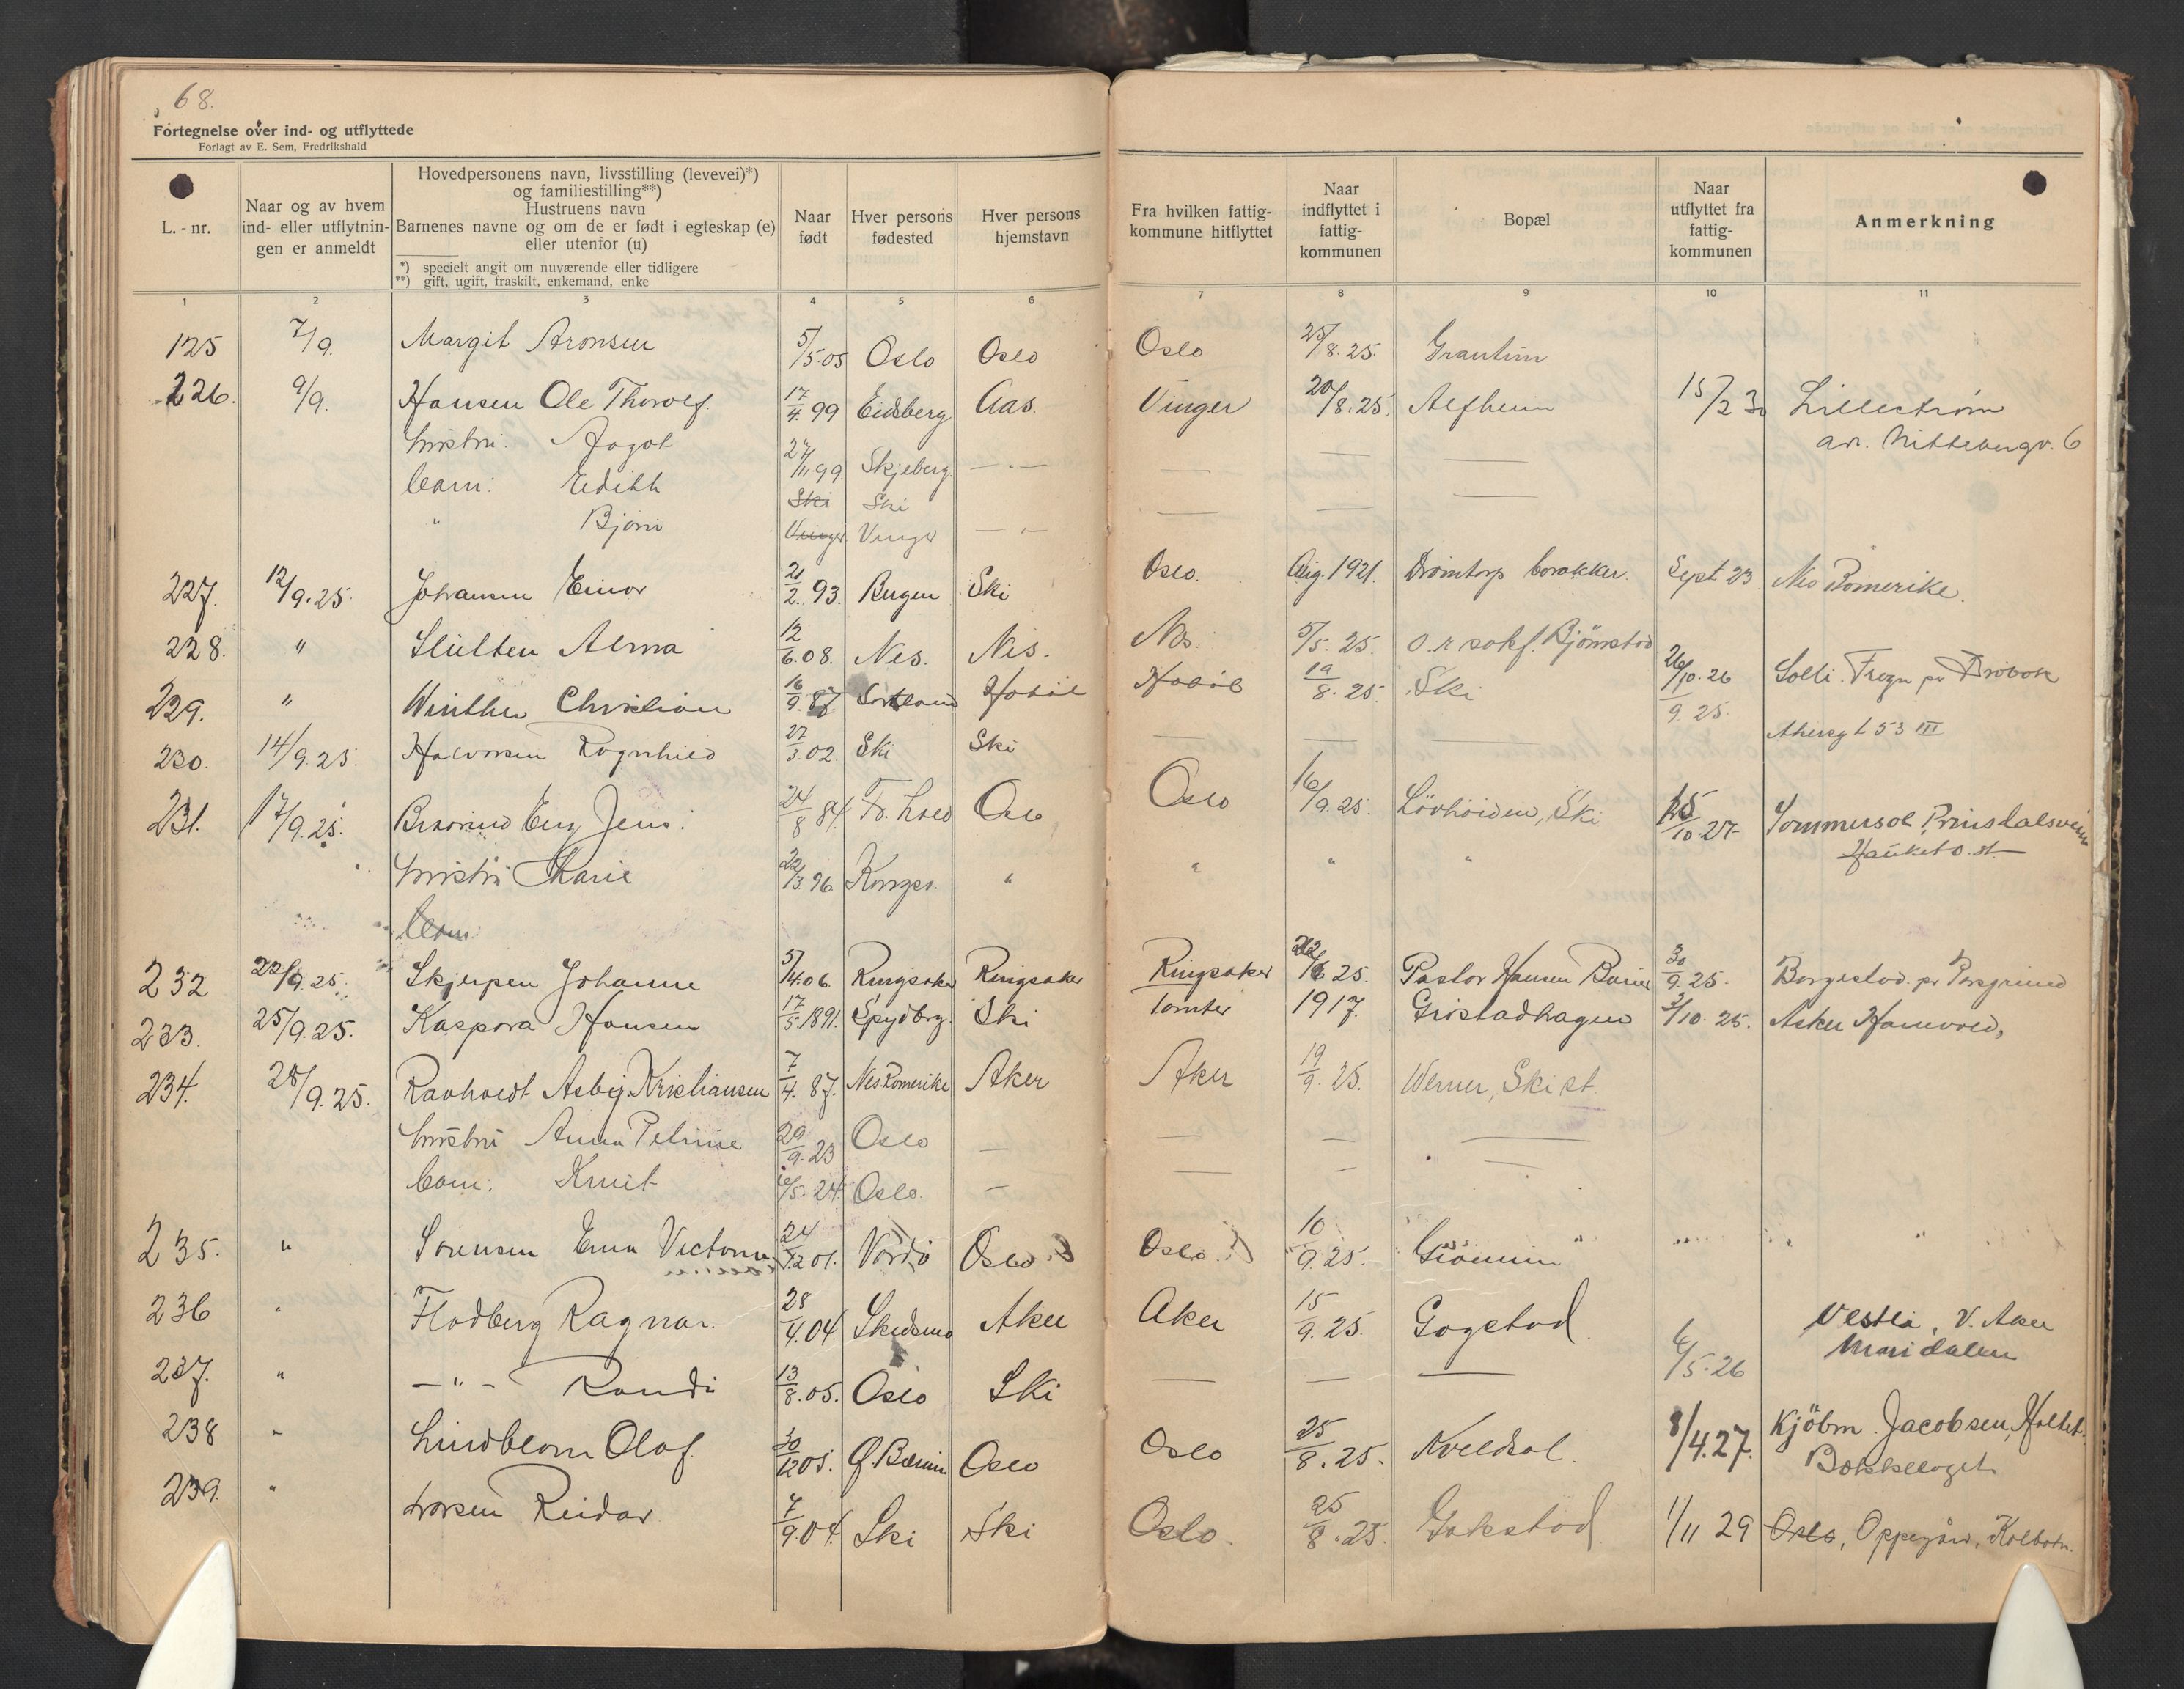 68.
Fortegnelse over ind- og utflyttede
Forlagt av E. Sem, Fredrikshald
L.-nr.
Naar og av hvem ind- eller utflytnin- gen er anmeldt
Hovedpersonens navn, livsstilling (levevei)*)
og familiestilling**)
Hustruens navn
Barnenes navne og om de er født i egteskap (e)
eller utenfor (u)
*) specielt angit om nuværende eller tidligere
**) gift, ugift, fraskilt, enkemand, enke
Naar født
Hver persons fødested
Hver persons hjemstavn
Fra hvilken fattig- kommune hitflyttet
Naar indflyttet i fattig- kommunen
Bopæl
Naar utflyttet fra fattig- kommunen
Anmerkning
1 2 3 4 5 6 7 8 9 10 11
125 7/9. Margit Aronsen 5/5.05 Oslo Oslo Oslo 25/8.25. Grantun
226. 9/9. Hansen Ole Thorolf. 17/4 99 Eidsberg Aas. Vinger 20/8.25. Alfheim 15/2 30 Lillestrøm
hustru: Aagot 27/11.99. Skjeberg — " — — — — av. Nittebergv. 6
barn: Edith Ski Ski — —
" Bjørn Vinger Vinger — " — — —
227. 12/9.25. Johansen Einar 21/2.93. Bergen Ski Oslo. Aug. 1921. Drømtorp barakker. Sept. 23 Nes Romerike.
228. " Slutten Alma 12/6.08. Nes. Nes. Nes. 5/5.25. o.r.sakf. Bjørnstad 26/10.26 Solli Frogn pr Drøbak
229. " Winther Christian 16/9.87 Sortland Hobøl Hobøl 19/8.25. Ski 9.25.
230. 14/9.25. Halvorsen Ragnhild 27/3.02. Ski Ski — — — Akersgt 53 III
231. 17/9.25. Jens. 24/8 84. Oslo Oslo 16/9.25. Løvheiden, Ski 15/10.27 Sommersol, Prinsdalsveien
hustru Marie 22/3.96 " " " " Hauketo st.
barn:
232 22/9.25. Skjerpen Johanne 5/4.06. Ringsaker Ringsaker Ringsaker 25. Pastor Hansen 30/9.25. Borgestad. pr Porsgrund
233. 25/9.25. Kaspara Hansen 17/5.1891. Spydbrg. Ski Tomter 1917. Gristadhagen 3/10.25. Asker
234. 28/9.25. Ravholdt Asbj. Kristiansen 7/4.87. Nes Romerike Aker Aker 19/9.25. Werner, Ski st.
hustru Anna Petrine 29/9.23 Oslo — — — —
barn: Knut 6/5.24. Oslo. — — — —
235. " Sørensen Erna Victoria 24/12 01. Vardø Oslo Oslo 10/9.25.
236 " Flodberg Ragnar. 28/4.04. Skedsmo Aker Aker 15/9.25. Gogstad. Vestli, V. Aker
237. " — " — Randi 13/8.05. Oslo Ski — — — 6/5.26 Maridalen
238 " Lindblom Olaf. 30/12 05. Ø. Bærum Oslo Oslo 25/8.25. Kveldsol. 8/4.27. Kjøbm. Jacobsen, Holtet.
Bækkelaget
239. " Larsen Reidar 7/9.04. Ski Ski Oslo. 25/8.25. Gokstad 1/11 29 Oslo, Oppegård, Kolbotn.